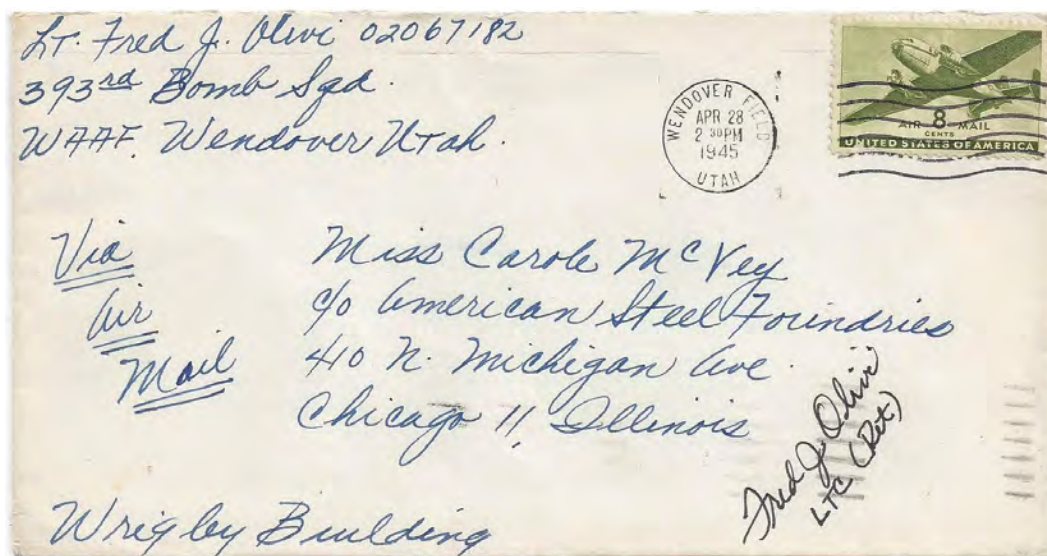 Lt. Fred J. Olivi 02067182
393rd Bomb Sqd.
WAAF. Wendover Utah.
WENDOVER FIELD
APR 28
2 30 PM
1945
UTAH
AIR 8 MAIL
CENTS
UNITED STATES OF AMERICA
Via
Air
Mail
Miss Carole McVey
c/o American Steel Foundries
410 N. Michigan Ave.
Chicago 11, Illinois
Fred J. Olivi
LTC (Ret)
Wrigley Building